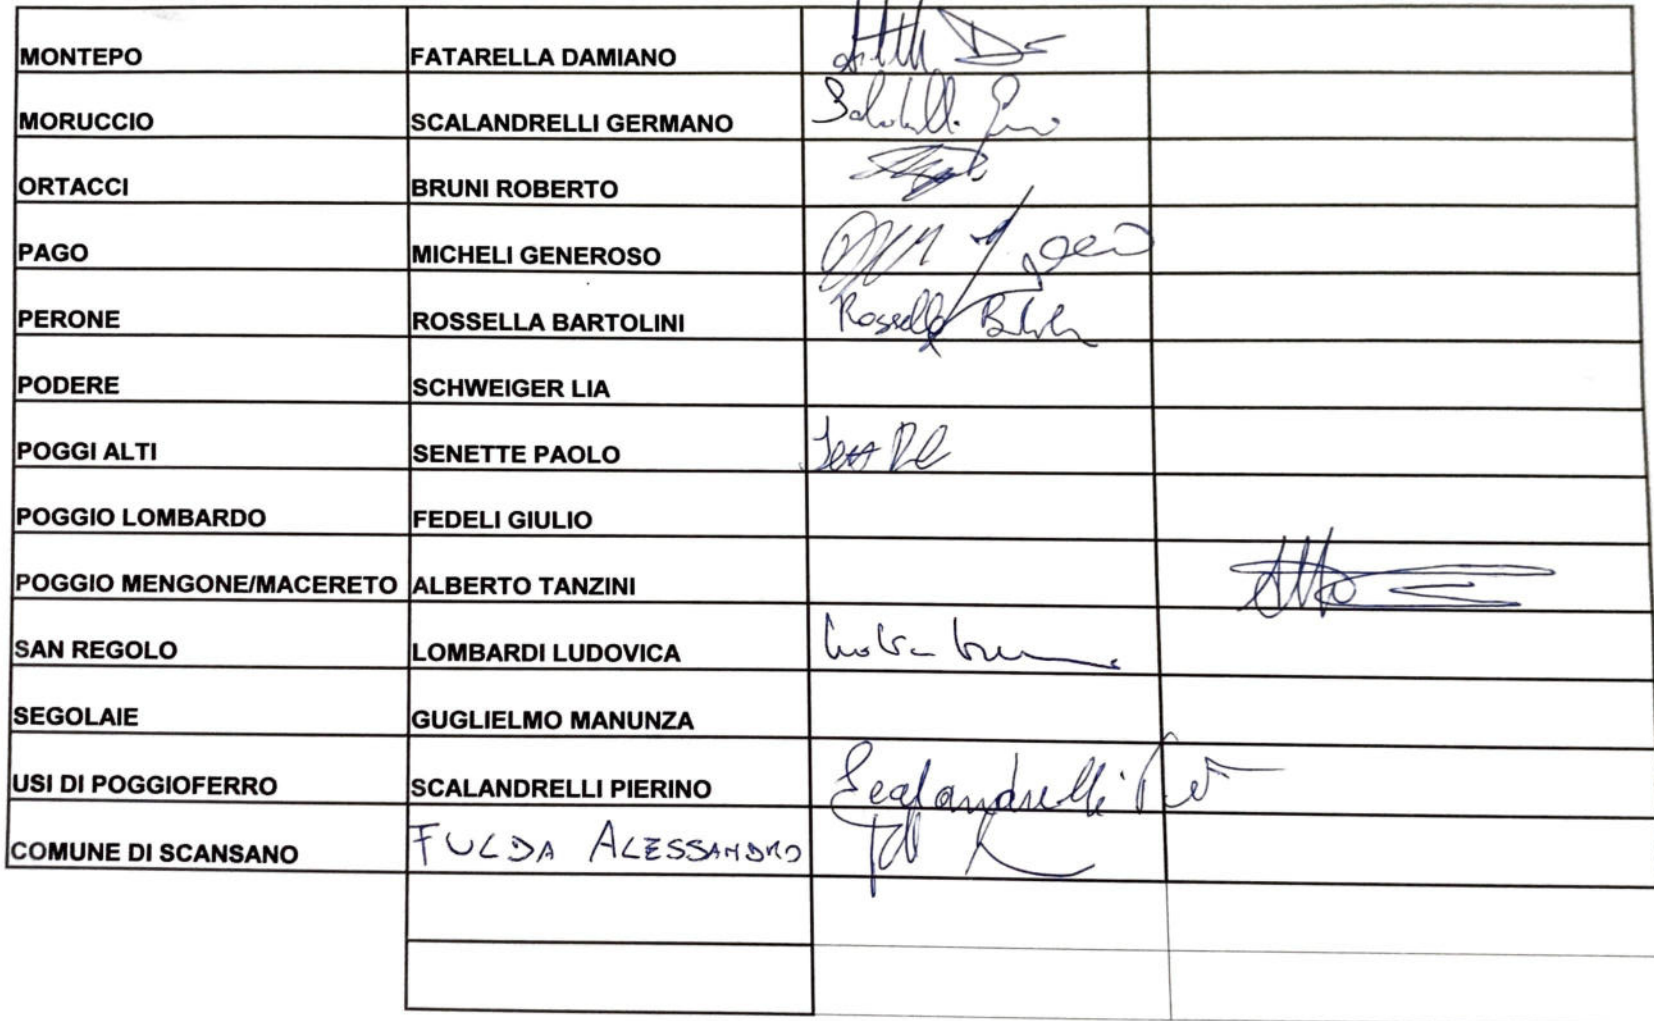 MONTEPO FATARELLA DAMIANO
MORUCCIO SCALANDRELLI GERMANO
ORTACCI BRUNI ROBERTO
PAGO MICHELI GENEROSO
PERONE ROSSELLA BARTOLINI Rossella
PODERE SCHWEIGER LIA
POGGI ALTI SENETTE PAOLO
POGGIO LOMBARDO FEDELI GIULIO
POGGIO MENGONE/MACERETO ALBERTO TANZINI
SAN REGOLO LOMBARDI LUDOVICA
SEGOLAIE GUGLIELMO MANUNZA
USI DI POGGIOFERRO SCALANDRELLI PIERINO Scalandrelli
COMUNE DI SCANSANO FULDA ALESSANDRO